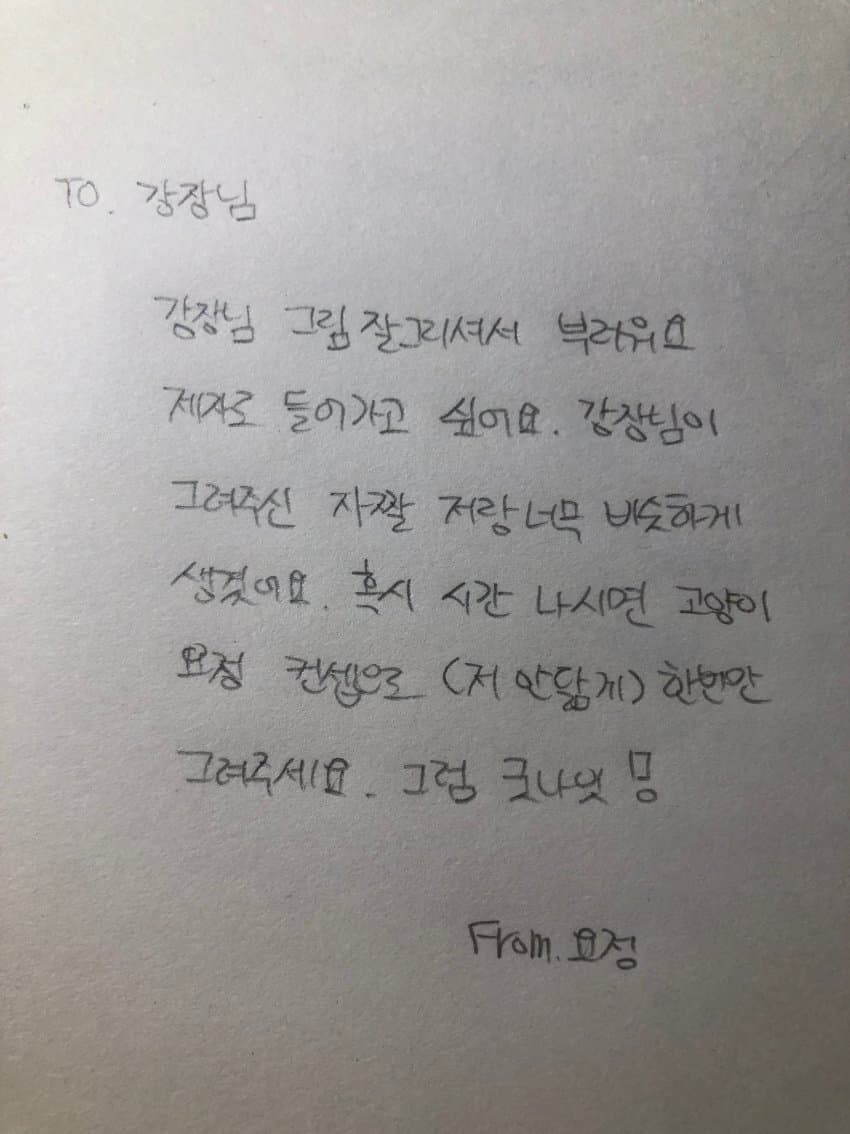 TO. 강장님
강장님 그림 잘그리셔서 부러워요
제자로 들어가고 싶어요. 강장님이
그려주신 자짤 저랑 너무 비슷하게
생겼어요. 혹시 시간 나시면 고양이
요정 컨셉으로 (저 안닮게) 한번만
그려주세요. 그럼 굿나잇 밍
From. 요정